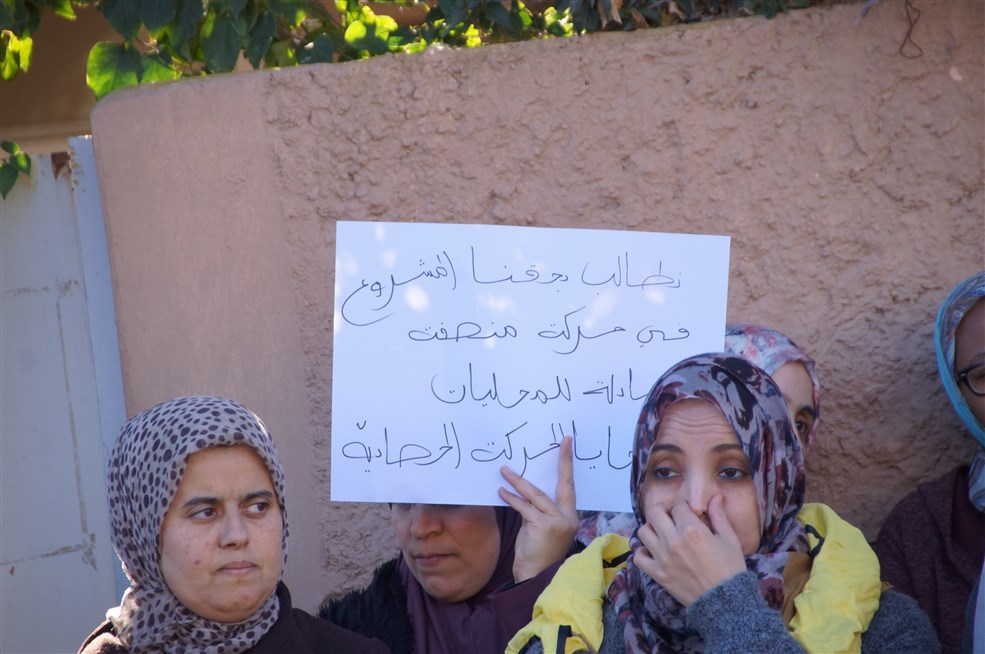 نطالب بحقنا المشروع
في حركة منصفة
للمحليات
الحركة الحصادية